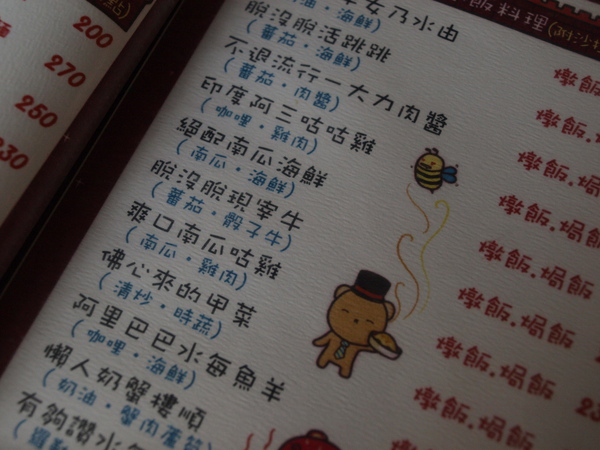 200
270
250
230
飯料理
女乃水由
油・海鮮)
脫沒脫活跳跳
(番茄・海鮮)
不退流行一大力肉醬
(番茄・肉醬)
印度阿三咕咕雞
(咖哩・雞肉)
絕配南瓜海鮮
(南瓜・海鮮)
脫沒脫現宰牛
(番茄・骰子牛)
爽口南瓜咕雞
(南瓜・雞肉)
佛心來的甲菜
(清炒・時蔬)
阿里巴巴水每魚羊
(咖哩・海鮮)
懶人奶蟹摟順
(奶油・蟹肉蘆筍
有夠讚水每
燉飯
燉飯.
燉飯.焗
燉飯.焗飯
燉飯.焗飯
燉飯.焗飯
燉飯.焗飯
燉飯.焗飯
燉飯.焗飯